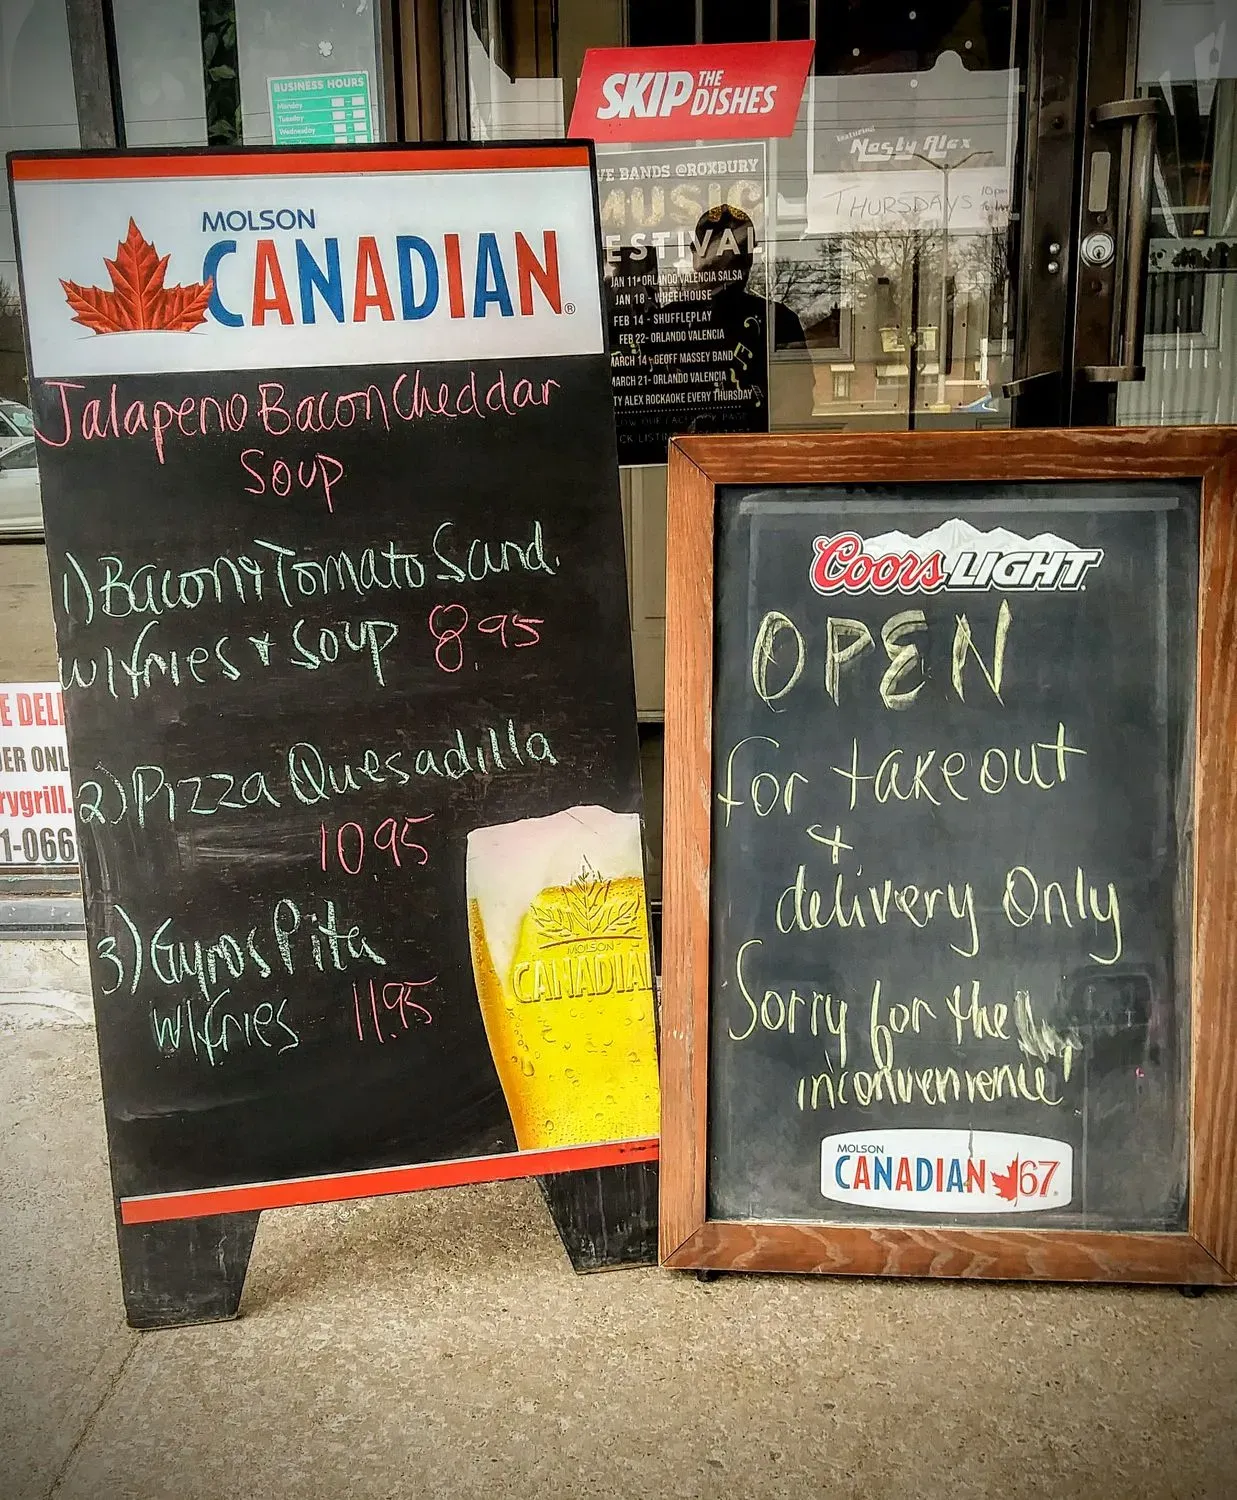 BUSINESS HOURS
Monday
Tuesday
Wednesday
SKIP THE DISHES
featuring
Nasty Alex
THURSDAYS 10pm
VE BANDS @ROXBURY
MUSIC
FESTIVAL
JAN 11-ORLANDO VALENCIA SALSA
JAN 18 - WHEELHOUSE
FEB 14 - SHUFFLEPLAY
FEB 22- ORLANDO VALENCIA
MARCH 14 -GEOFF MASSEY BAND
MARCH 21- ORLANDO VALENCIA
TY ALEX ROCKAOKE EVERY THURSDAY
MOLSON
CANADIAN®
Jalapeno Bacon Cheddar
Soup
1) Bacon + Tomato Sand.
w/fries + Soup 8.95
2) Pizza Quesadilla
10.95
3) Gyros Pita
w/fries 11.95
MOLSON
CANADIAN
E DELI
DER ONL
rygrill.
1-066
Coors LIGHT
OPEN
for takeout
+
delivery Only
Sorry for the
inconvenience!
MOLSON
CANADIAN 67